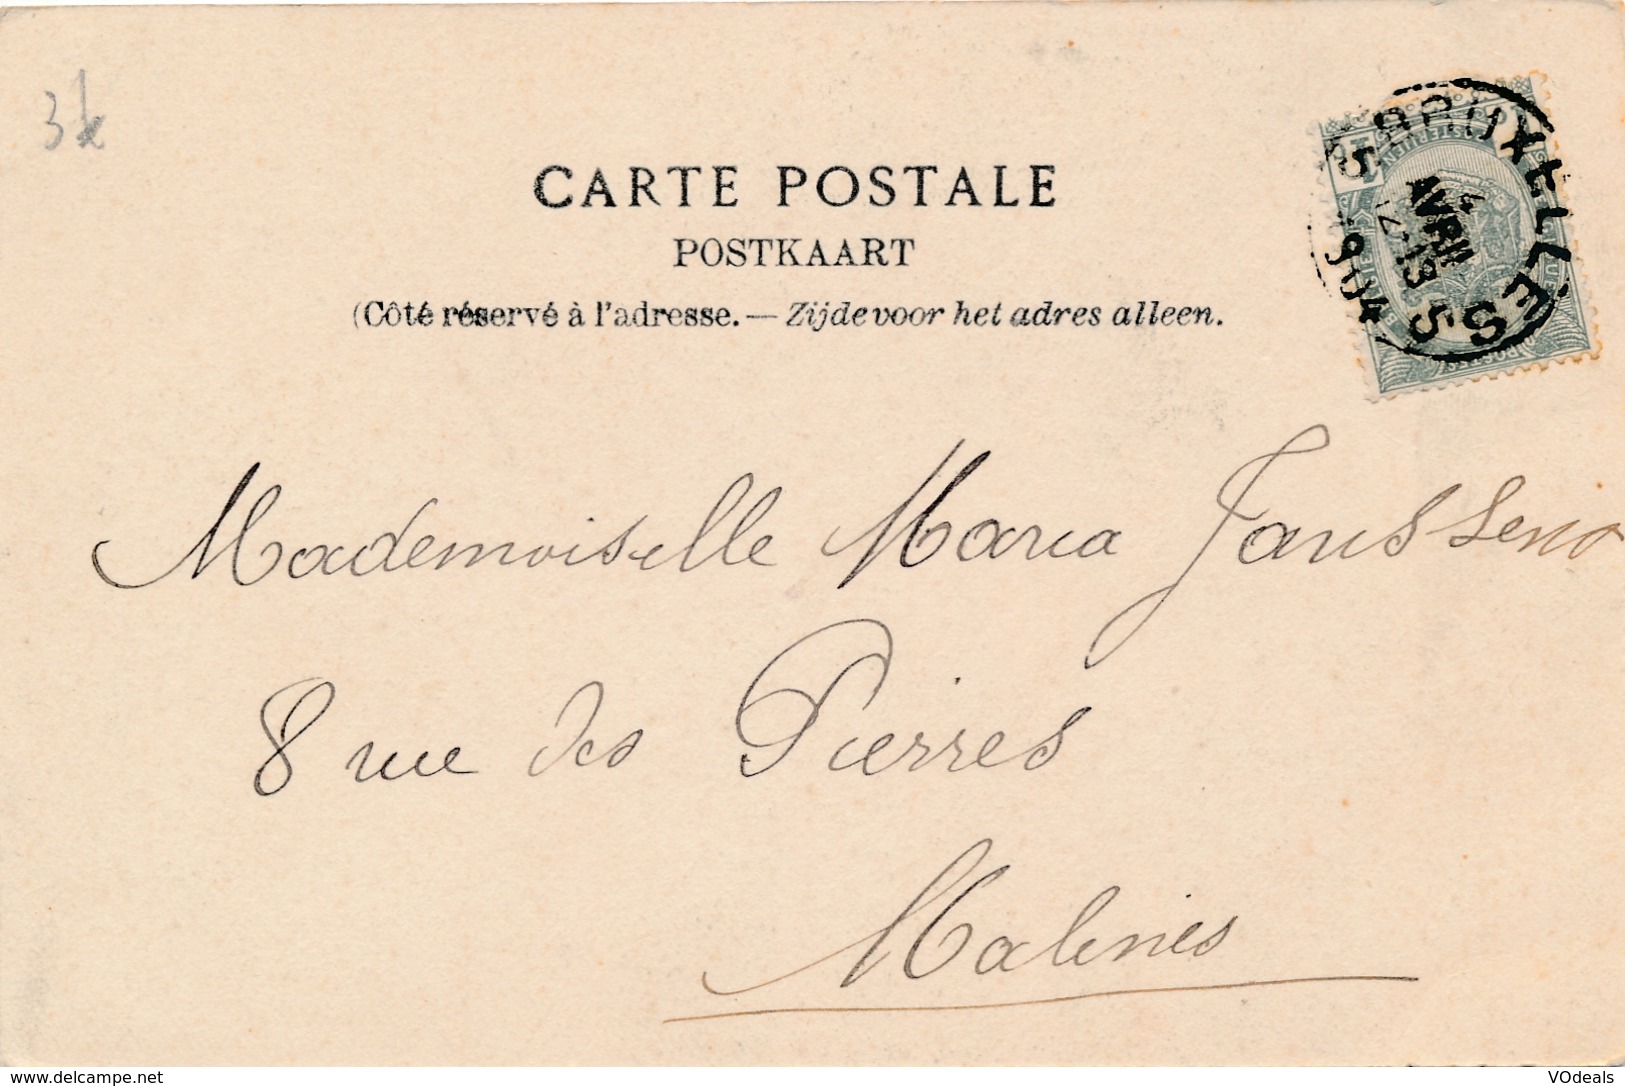 3k
CARTE POSTALE
POSTKAART
(Côté réservé à l'adresse. — Zijde voor het adres alleen.
BRUXELLES 5
4
AVRIL
12-13
1904
5
POSTES
Mademoiselle Maria Janssens
8 rue des Pierres
Malines
www.delcampe.net
VOdeals